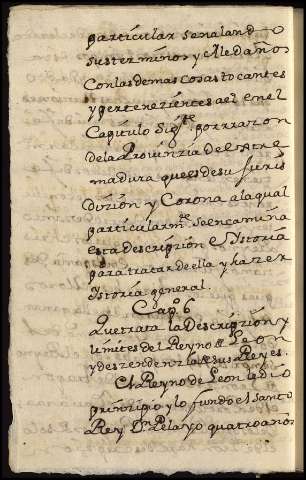 particular senaland o
susterminos y Aledaños
Conlas demas cosas tocantes
y pertenezientes a el en el
Capitulo Sigte. porrrazon
de la Provinzia de Estre
madura que es de su Juris
dizion y Corona a la qual
particularmte. se encamina
esta descripzion e Ystoria
para tratar de ella y hazer
Ystoria general.
Capo. 6
Que trata la Descripzion y
limites del Reyno de Leon
y deszendenzia de sus Reyes.
El Reyno de Leon le dio
prinzipio y lo fundo el santo
Rey Dn. Pelayo quatro años